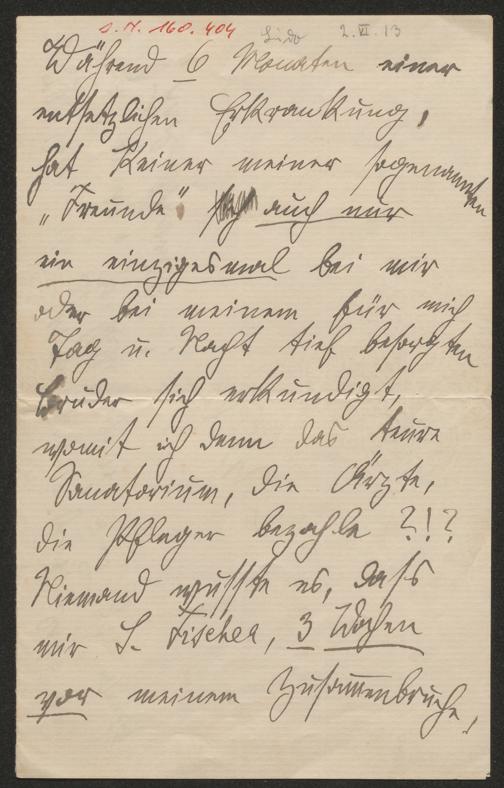 S. N. 160.404
Lido 2.VI.13
Während 6 Monaten einer
entsetzlichen Erkrankung,
hat Keiner meiner sogenannten
„Freunde" auch nur
ein einzigesmal bei mir
oder bei meinem für mich
Tag u. Nacht tief besorgten
Bruder sich erkundigt,
womit ich denn das teure
Sanatorium, die Ärzte,
die Pfleger bezahle ?!?
Niemand wusste es, dass
mir S. Fischer, 3 Wochen
vor meinem Zusammenbruche,